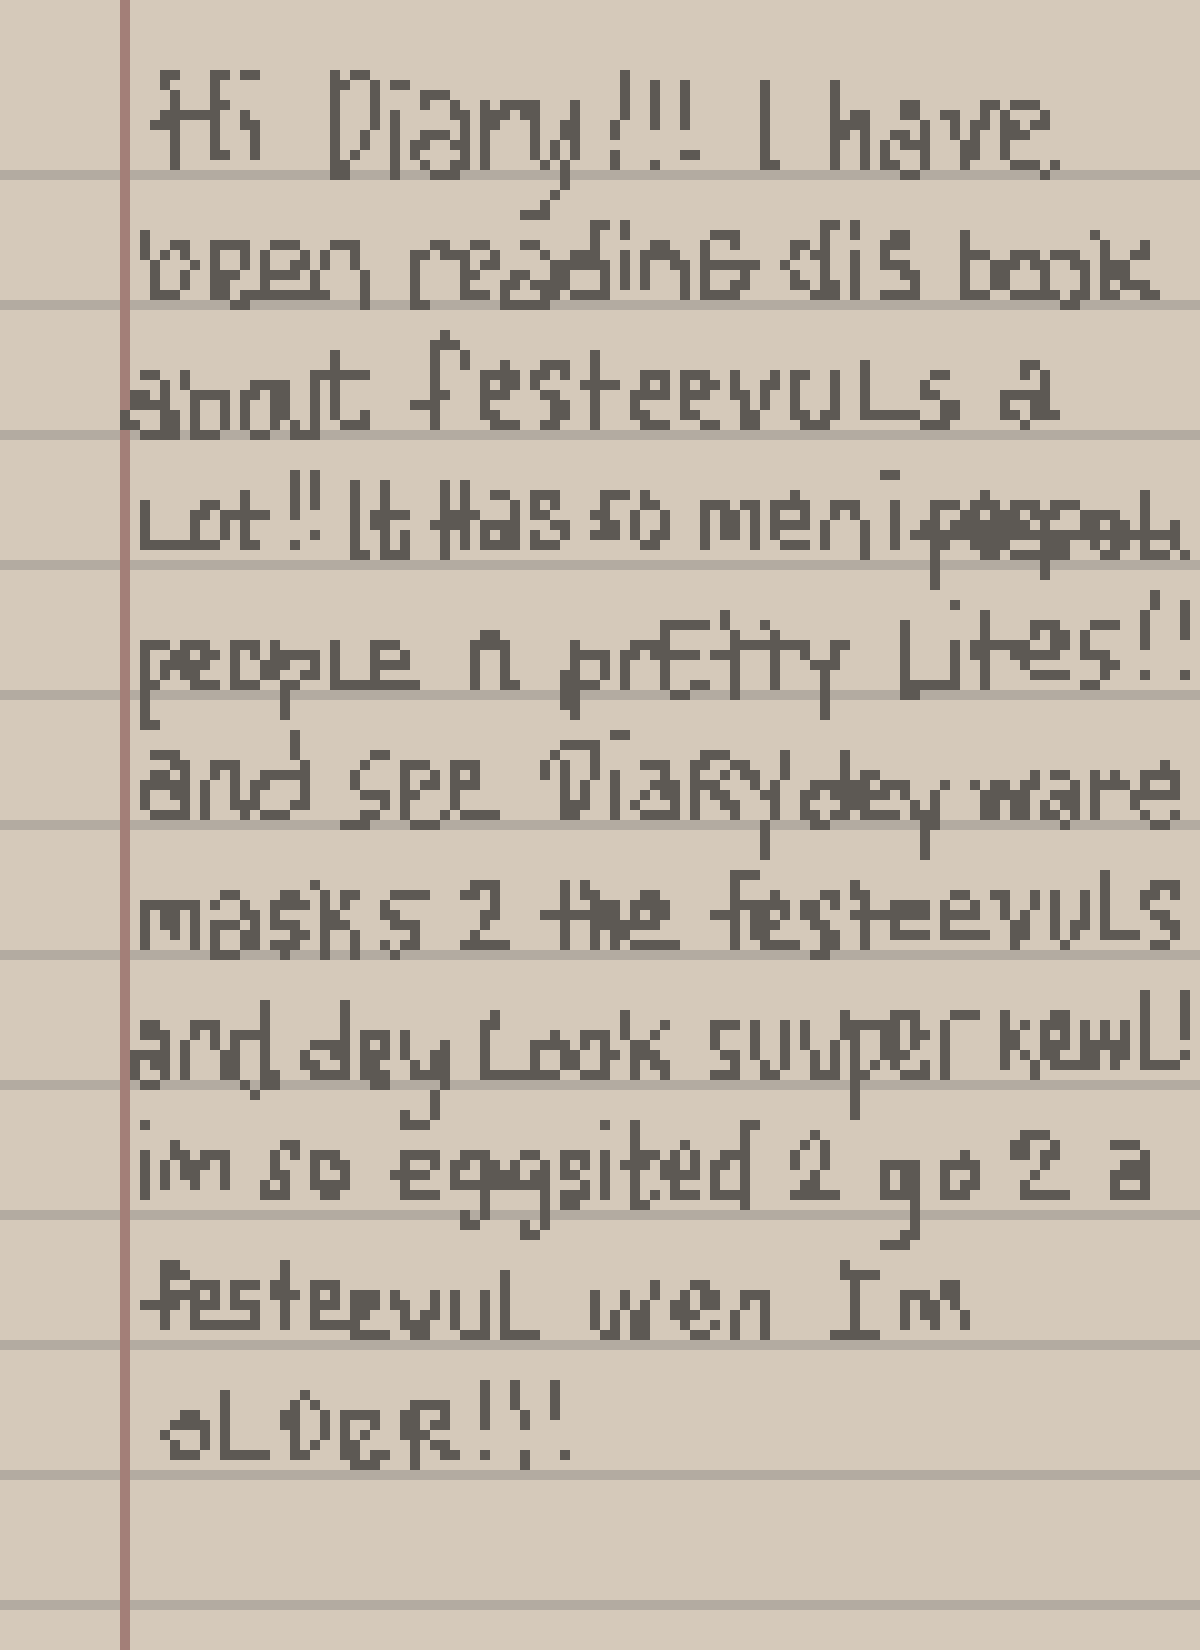 Hi Diary!!! I have
been reading dis book
about festeevuLs a
Lot!! It Has so meni
peopLe n prEtty Lites!!
and see DiaRy dey ware
masks 2 the festeevuLs
and dey Look suuper kewL!
im so eggsited 2 go 2 a
festeevuL wen Im
oLDeR!!!